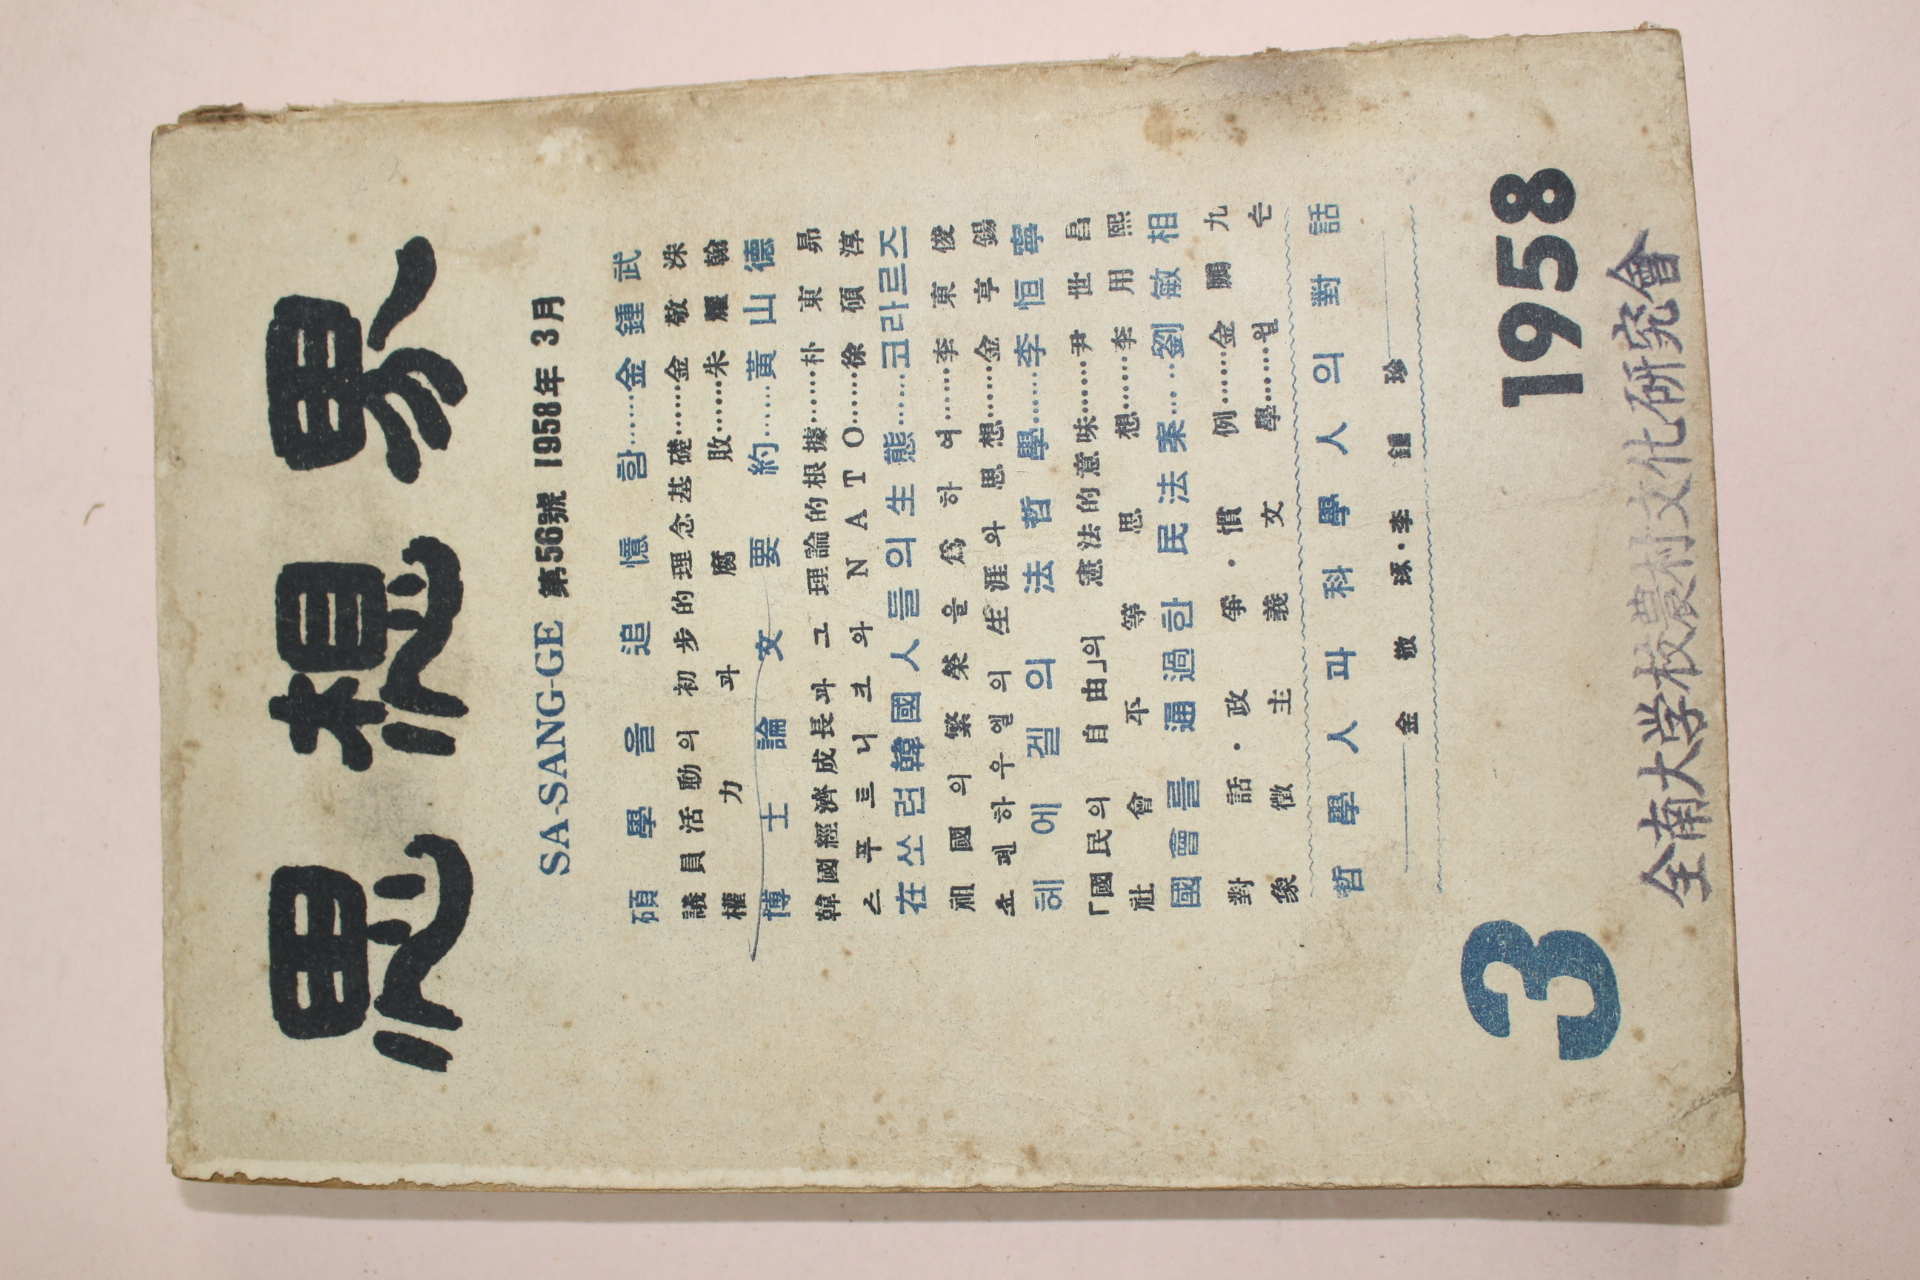 思想界
SA-SANG-GE 第56號 1958年 3月
碩學을 追憶함……金鍾武
議員活動의 初步的理念基礎……金敬洙
權力과 腐敗……朱耀翰
博士論文要約……黃山德
韓國經濟成長과 그 理論的根據……朴東昴
스푸트니크와 NATO……徐碩淳
在쏘련韓國人들의 生態……코라르즈
祖國의 繁榮을 爲하여……李東俊
쇼펜하우엘의 生涯와 思想……金亨錫
헤에겔의 法哲學……李恒寧
「國民의 自由」의 憲法的意味……尹世昌
社會不等思想……李用熙
國會를 通過한 民法案……劉敏相
對話·政爭·慣例……金鵬九
象徵主義文學……윌슨
哲學人과 科學人의 對話
金敬琢·李鍾珍
3
1958
全南大学校農村文化研究會